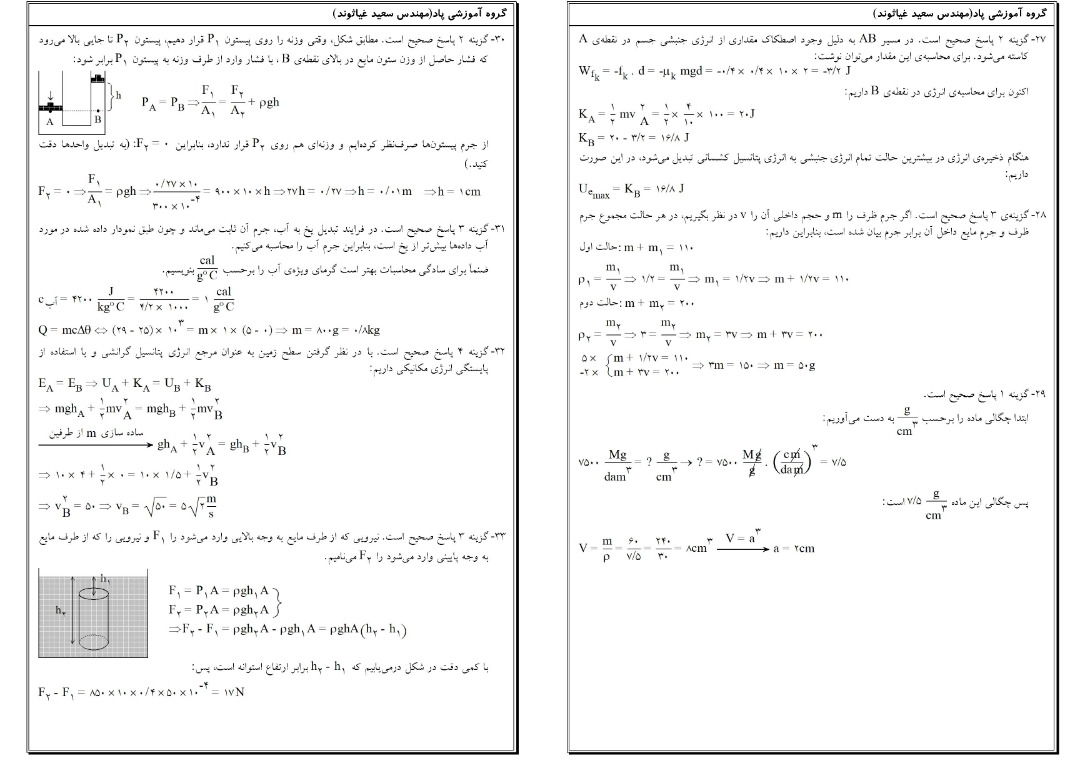 گروه آموزشی پاد(مهندس سعید غیاثوند)
۲۷- گزینه ۲ پاسخ صحیح است. در مسیر AB به دلیل وجود اصطکاک مقداری از انرژی جنبشی جسم در نقطه‌ی A
کاسته می‌شود. برای محاسبه‌ی این مقدار می‌توان نوشت:
W_fk = -f_k . d = -μ_k mgd = -۰/۴ × ۰/۴ × ۱۰ × ۲ = -۳/۲ J
اکنون برای محاسبه‌ی انرژی در نقطه‌ی B داریم:
K_A = ۱/۲ mv_A^۲ = ۱/۲ × ۴/۱۰ × ۱۰۰ = ۲۰J
K_B = ۲۰ - ۳/۲ = ۱۶/۸ J
هنگام ذخیره‌ی انرژی در بیشترین حالت تمام انرژی جنبشی به انرژی پتانسیل کشسانی تبدیل می‌شود، در این صورت
داریم:
U_e max = K_B = ۱۶/۸ J
۲۸- گزینه‌ی ۳ پاسخ صحیح است. اگر جرم ظرف را m و حجم داخلی آن را v در نظر بگیریم، در هر حالت مجموع جرم
ظرف و جرم مایع داخل آن برابر جرم بیان شده است، بنابراین داریم:
حالت اول: m + m_۱ = ۱۱۰
ρ_۱ = m_۱/v ⇒ ۱/۲ = m_۱/v ⇒ m_۱ = ۱/۲v ⇒ m + ۱/۲v = ۱۱۰
حالت دوم: m + m_۲ = ۲۰۰
ρ_۲ = m_۲/v ⇒ ۳ = m_۲/v ⇒ m_۲ = ۳v ⇒ m + ۳v = ۲۰۰
۵ × { m + ۱/۲v = ۱۱۰
-۲ × { m + ۳v = ۲۰۰ ⇒ ۳m = ۱۵۰ ⇒ m = ۵۰g
۲۹- گزینه ۱ پاسخ صحیح است.
ابتدا چگالی ماده را برحسب g/cm^۳ به دست می‌آوریم:
۷۵۰۰ Mg/dam^۳ = ? g/cm^۳ → ? = ۷۵۰۰ Mg/g . (cm/dam)^۳ = ۷/۵
پس چگالی این ماده ۷/۵ g/cm^۳ است:
V = m/ρ = ۶۰/۷/۵ = ۲۴۰/۳۰ = ۸cm^۳ V = a^۳ → a = ۲cm
گروه آموزشی پاد(مهندس سعید غیاثوند)
۳۰- گزینه ۲ پاسخ صحیح است. مطابق شکل، وقتی وزنه را روی پیستون P_۱ قرار دهیم، پیستون P_۲ تا جایی بالا می‌رود
که فشار حاصل از وزن ستون مایع در بالای نقطه‌ی B ، با فشار وارد از طرف وزنه به پیستون P_۱ برابر شود:
h
A B
P_A = P_B ⇒ F_۱/A_۱ = F_۲/A_۲ + ρgh
از جرم پیستون‌ها صرف‌نظر کرده‌ایم و وزنه‌ای هم روی P_۲ قرار ندارد، بنابراین F_۲ = ۰: (به تبدیل واحدها دقت
کنید.)
F_۲ = ۰ ⇒ F_۱/A_۱ = ρgh ⇒ ۰/۲۷ × ۱۰/۳۰۰ × ۱۰^-۴ = ۹۰۰ × ۱۰ × h ⇒ ۲۷h = ۰/۲۷ ⇒ h = ۰/۰۱m ⇒ h = ۱cm
۳۱- گزینه ۳ پاسخ صحیح است. در فرایند تبدیل یخ به آب، جرم آن ثابت می‌ماند و چون طبق نمودار داده شده در مورد
آب داده‌ها بیش‌تر از یخ است، بنابراین جرم آب را محاسبه می‌کنیم.
ضمناً برای سادگی محاسبات بهتر است گرمای ویژه‌ی آب را برحسب cal/g°C بنویسیم.
c_آب = ۴۲۰۰ J/kg°C = ۴۲۰۰/۴/۲ × ۱۰۰۰ = ۱ cal/g°C
Q = mcΔθ ⇔ (۲۹ - ۲۵) × ۱۰^۳ = m × ۱ × (۵ - ۰) ⇒ m = ۸۰۰g = ۰/۸kg
۳۲- گزینه ۴ پاسخ صحیح است. با در نظر گرفتن سطح زمین به عنوان مرجع انرژی پتانسیل گرانشی و با استفاده از
پایستگی انرژی مکانیکی داریم:
E_A = E_B ⇒ U_A + K_A = U_B + K_B
⇒ mgh_A + ۱/۲ mv_A^۲ = mgh_B + ۱/۲ mv_B^۲
ساده سازی m از طرفین → gh_A + ۱/۲ v_A^۲ = gh_B + ۱/۲ v_B^۲
⇒ ۱۰ × ۴ + ۱/۲ × ۰ = ۱۰ × ۱/۵ + ۱/۲ v_B^۲
⇒ v_B^۲ = ۵۰ ⇒ v_B = √۵۰ = ۵√۲ m/s
۳۳- گزینه ۳ پاسخ صحیح است. نیرویی که از طرف مایع به وجه بالایی وارد می‌شود را F_۱ و نیرویی را که از طرف مایع
به وجه پایینی وارد می‌شود را F_۲ می‌نامیم.
h_۱
h_۲
F_۱ = P_۱A = ρgh_۱A
F_۲ = P_۲A = ρgh_۲A }
⇒ F_۲ - F_۱ = ρgh_۲A - ρgh_۱A = ρghA(h_۲ - h_۱)
با کمی دقت در شکل درمی‌یابیم که h_۲ - h_۱ برابر ارتفاع استوانه است، پس:
F_۲ - F_۱ = ۸۵۰ × ۱۰ × ۰/۴ × ۵۰ × ۱۰^-۴ = ۱۷N